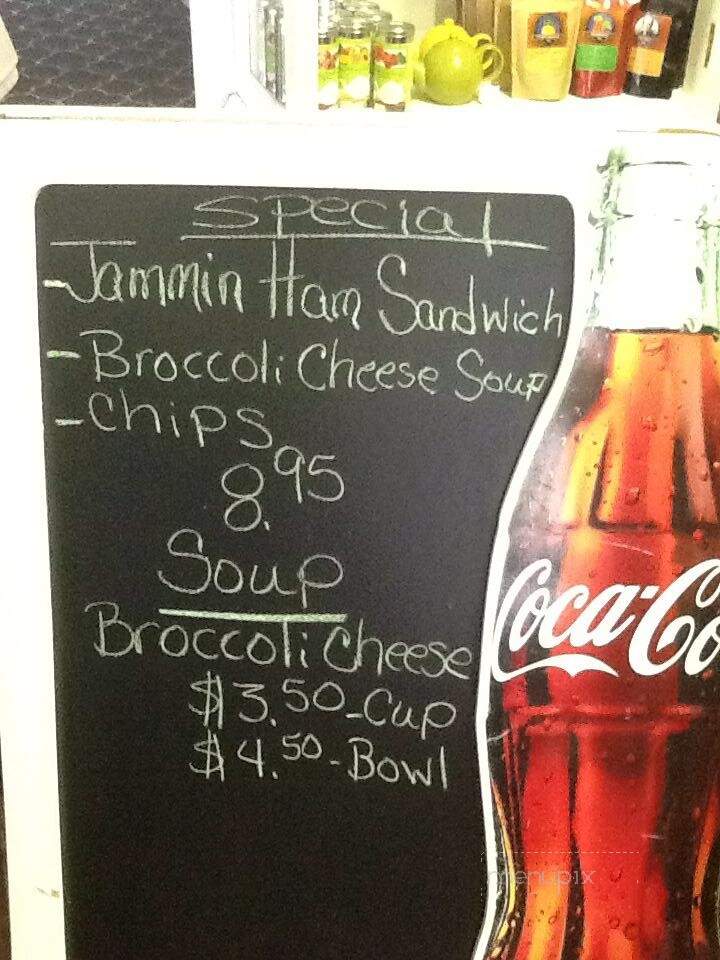 Special
- Jammin Ham Sandwich
- Broccoli Cheese Soup
- Chips
8.95
Soup
Broccoli Cheese
$3.50 - Cup
$4.50 - Bowl
Coca-Co
menupix